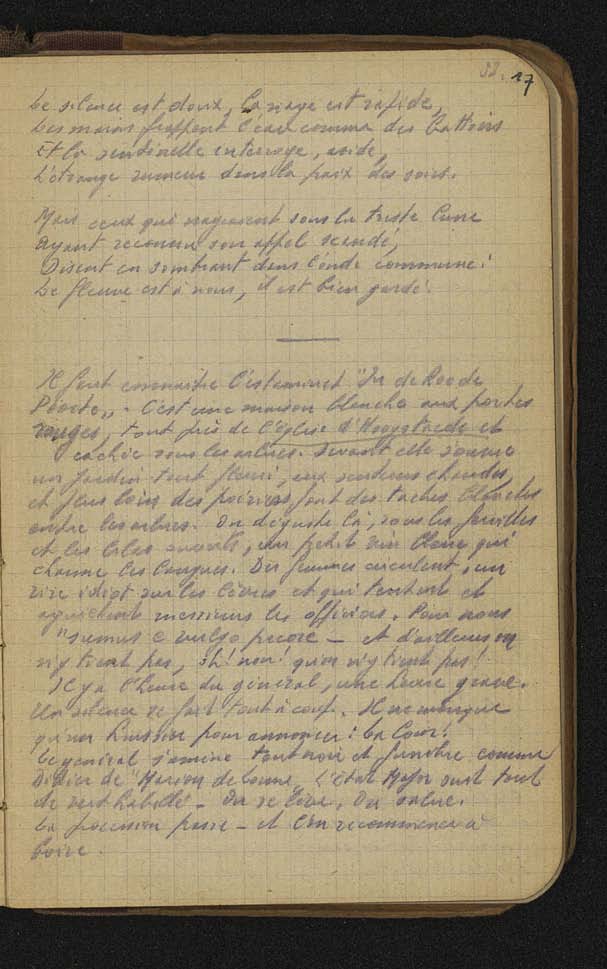 32. 17
Le silence est doux, la nage est rapide,
Les mains frappent l'eau comme des battoirs
Et la sentinelle interroge, avide,
L'étrange rumeur dans la paix des soirs.
Mais ceux qui nageaient sous la triste lune
Ayant reconnu son appel scandé,
Disent en sombrant dans l'onde commune:
Le fleuve est à nous, il est bien gardé.
Il faut connaître l'estaminet "In de Roode
Poorte". C'est une maison blanche aux portes
rouges, tout près de l'église d'Hoogstaede et
cachée sous les arbres. Devant elle s'ouvre
un jardin tout fleuri, aux senteurs chaudes,
et plus loin des poiriers font des taches blanches
entre les arbres. On déguste là, sous les feuilles
et les lilas ouverts, un petit vin blanc qui
charme les langues. Des femmes circulent, un
rire idiot sur les lèvres et qui tentent et
aguichent messieurs les officiers. Pour nous
"sumus e vulgo pecore – et d'ailleurs on
n'y tient pas, oh! non! qu'on n'y tient pas!
Il y a l'heure du général, une heure grave.
Un silence se fait tout à coup. Il ne manque
qu'un huissier pour annoncer: La Cour!
Le général s'amène tout noir et funèbre comme
Didier de "Marion de Lorme, L'état Major suit tout
de vert habillé – On se lève, On salue.
La procession passe – et l'on recommence à
boire.